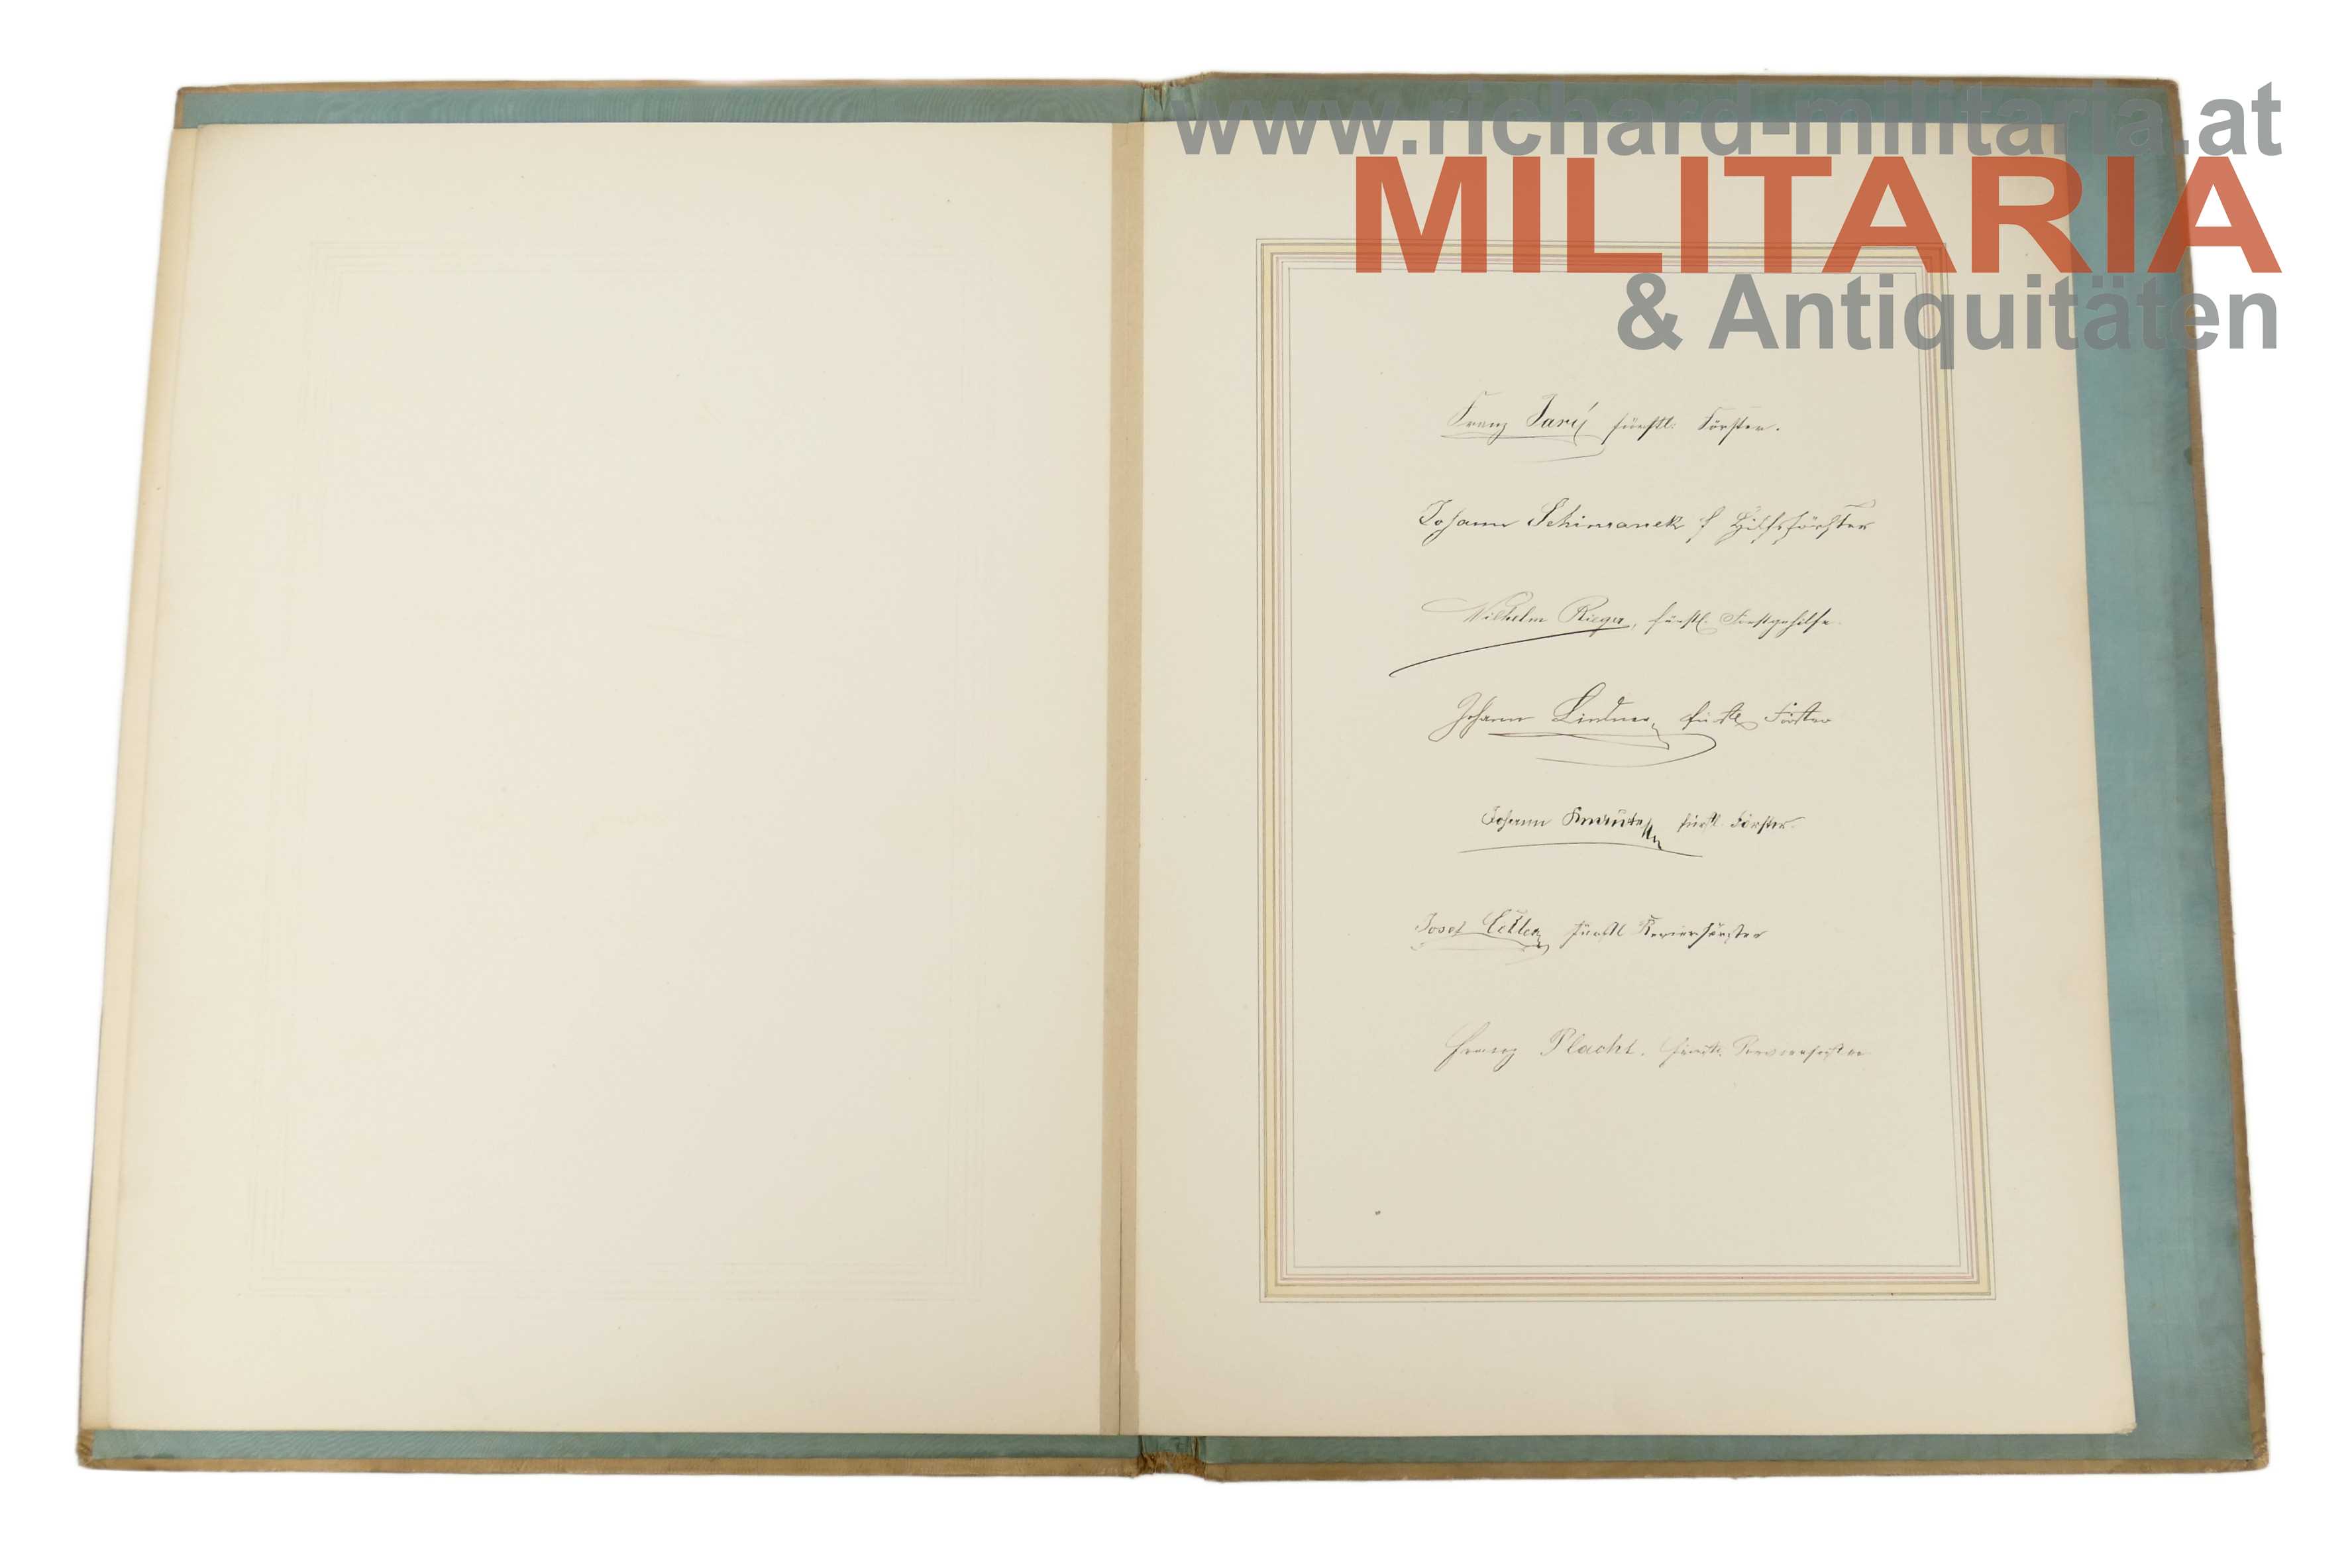 www.richard-militaria.at
MILITARIA
& Antiquitäten
Franz fürstl. Förster.
Johann Schimanek f Hilfsförster
Wilhelm Rieger, fürstl. Forstgehilfe
Johann Lindner fürstl. Förster
Johann fürstl. Förster
Josef fürstl Revierförster
Franz Placht. fürstl. Revierförster